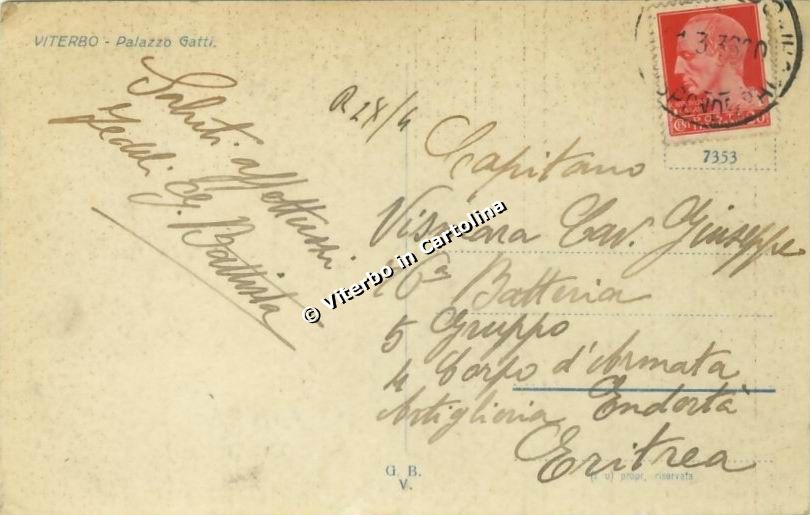 VITERBO - Palazzo Gatti.
Saluti affettuosi
G. Battista
R 28/4
7353
Capitano
Cav. Giuseppe
16ª Batteria
5 Gruppo
4 Corpo d'Armata
Artiglieria Endertà
Eritrea
G. B.
V.
propr. riservata
© Viterbo in Cartolina